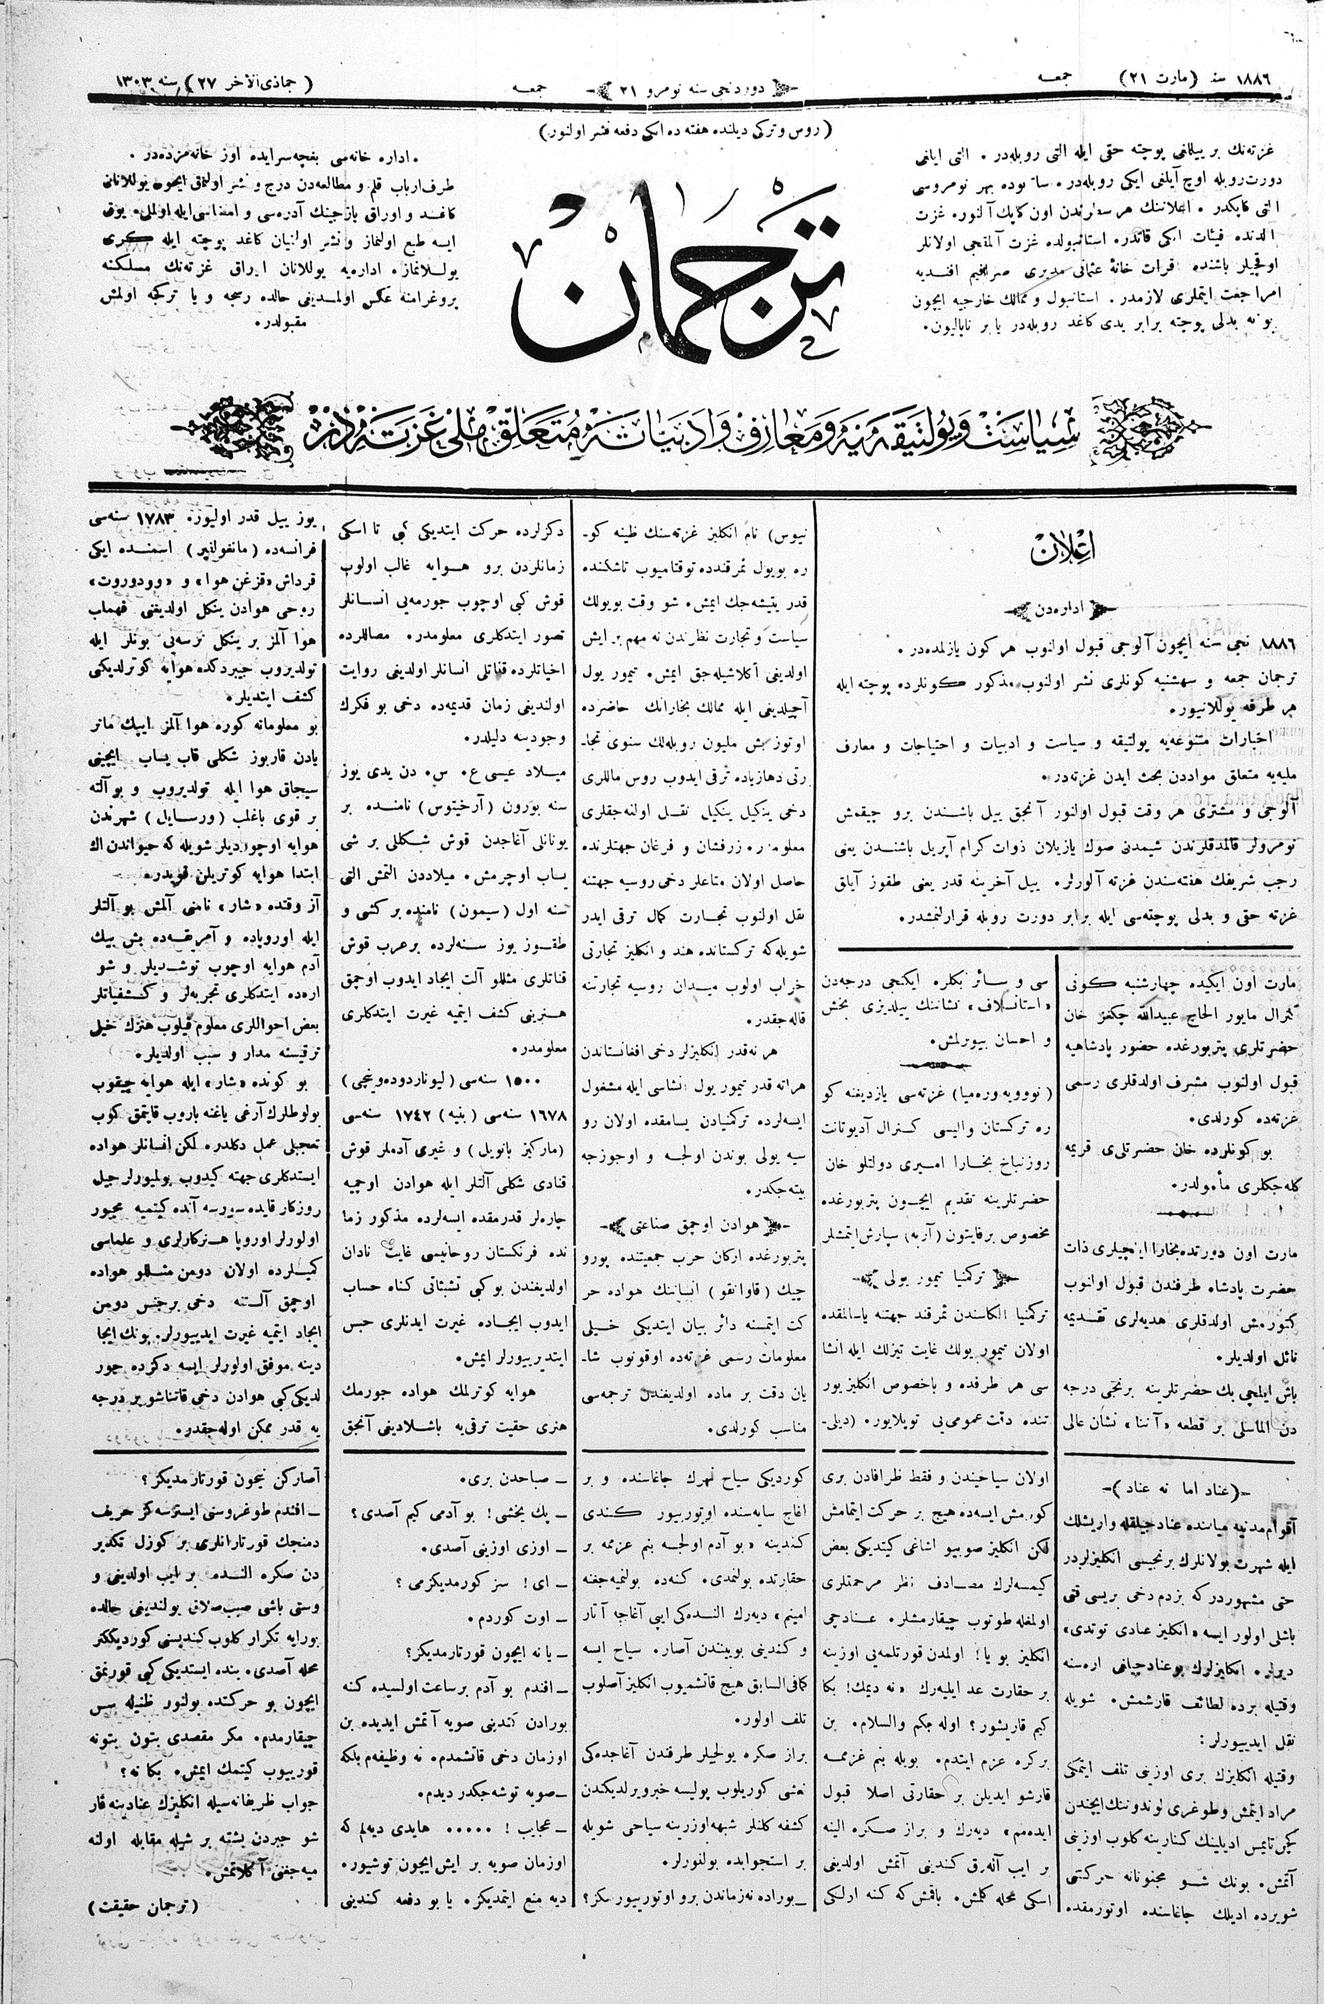 ١٨٨٦ سنه (مارت ٢١) جمعه
دوردنجی سنه نومرو ٢١ جمعه
(جماذی الآخر ٢٧) سنه ١٣٠٣
(روس وتركی دیلنده هفته ده ایكی دفعه نشر اولنور)
غزته‌نك بر ییللغی پوچته حقی ایله التی روبله‌در. التی ایلغی
دورت روبله اوچ آیلغی ایكی روبله‌در. ساتوده بهر نومروسی
التی قاپكدر. اعلاننك هر سطرندن اون كاپك آلنور. غزت
الدنده فیئات ایكی قاتدر. استانبولده غزت آلمقجی اولانلر
اوقجیلر باشنده قرات خانهٔ عثمانی مدیری صرافیم افندیه
امراجعت ایتملری لازمدر. استانبول و ممالك خارجیه ایچون
بونه بدلی پوچته برابر یدی كاغد روبله‌در یا بر ناپالیون.
ترجمان
اداره خانه‌سی بغچه‌سرایده اوز خانه‌مزده‌در.
طرف ارباب قلم و مطالعه‌دن درج و نشر اولنمق ایچون یوللانانی
كاغد و اوراق یازجینك آدره‌سی و امضاسی ایله اولملی. یوق
ایسه طبع اولنماز و نشر اولنیان كاغد پوچته ایله كری
یوللانماز. اداره‌یه یوللانان اوراق غزته‌نك مسلكنه
پروغرامنه عكس اولمدینی حالده رسجه و یا تركجه اولمش
مقبولدر.
سیاست و پولتیقه‌یه و معارف و ادبیاته متعلق ملی غزته‌در
اعلان
اداره‌دن
١٨٨٦ نجی سنه ایچون آلوجی قبول اولنوب هر كون یازلمده‌در.
ترجمان جمعه و سهشنبه كونلری نشر اولنوب مذكور كونلرده پوچته ایله
هر طرفه یوللانیور.
اخبارات متنوعه‌یه پولتیقه و سیاست و ادبیات و احتیاجات و معارف
ملیه‌یه متعلق موادّدن بحث ایدن غزته‌در.
آلوجی و مشتری هر وقت قبول اولنور آنجق ییل باشندن برو چیقمش
نومرولر قالمدقلرندن شیمدن صوك یازیلان ذوات كرام آپریل باشندن یعنی
رجب شریفك هفته‌سندن غزته آلورلر. ییل آخرینه قدر یعنی طقوز آیلق
غزته حقی و بدلی پوچته‌سی ایله برابر دورت روبله قرارلنمشدر.
مارت اون ایكیده چهارشنبه كونی
كنرال مایور الحاج عبیدالله چكفز خان
حضرتلری پتربورغده حضور پادشاهیه
قبول اولنوب مشرف اولدقلری رسمی
غزته‌ده كورلدی.
بو كونلرده خان حضرتلری قریمه
كله‌جكلری مأمولدر.
مارت اون دورتده بخارا ایلچیلری ذات
حضرت پادشاه طرفندن قبول اولنوب
كتورمش اولدقلری هدیه‌لری تقدیمه
نائل اولدیلر.
باش ایلچی بك حضرتلرینه برنجی درجه
دن الماسلی بر قطعه «آننا» نشان عالی
سی و سائر بكلره ایكنجی درجه‌دن
«استانسلاف» نشاننك ییلدیزی بخش
و احسان بیورلمش.
(نوویه وره‌میا) غزته‌سی یازدیغنه كو
ره تركستان والیسی كنرال آدیوتانت
روزنباخ بخارا امیری دولتلو خان
حضرتلرینه تقدیم ایچون پتربورغده
مخصوص بر فایتون (آربه) سپارش ایتمشلر
تركمنیا تیمور یولی
تركمنیا الكاسندن ثمرقند جهتنه یاسالمقده
اولان تیمور یولك غایت تیزلك ایله انشا
سی هر طرفده و باخصوص انكلیز یور
تنده دقت عمومی‌یی توپلایور. (دیلی‌ـ
نیوس) نام انكلیز غزته‌سنك ظننه كو‌ـ
ره بو یول ثمرقندده توقتامیوب تاشكنده
قدر یتیشه‌جك ایمش. شو وقت بو یولك
سیاست و تجارت نظرندن نه مهم بر ایش
اولدیغی آكلاشیله‌جق ایمش. تیمور یول
آچیلدیغی ایله ممالك بخارانك حاضرده
اوتوز بش ملیون روبله‌لك سنوی تجا‌ـ
رتی دها زیاده ترقی ایدوب روس ماللری
دخی ینكیل ینكیل نقل اولنه‌جقلری
معلومدر. زرفشان و فرغان جهتلرنده
حاصل اولان متاعلر دخی روسیه جهتنه
نقل اولنوب تجارت كمال ترقی ایدر
شویله كه تركستانده هند و انكلیز تجارتی
خراب اولوب میدان روسیه تجارتنه
قاله‌جقدر.
هر نه قدر انكلیزلر دخی افغانستاندن
هراته قدر تیمور یول انشاسی ایله مشغول
ایسه‌لرده تركمنیادن یسامقده اولان رو
سیه یولی بوندن اولجه و اوجوزجه
بیته‌جكدر.
هوادن اوچمق صناعتی
پتربورغده اركان حرب جمعیتنده پورو
چیك (قاوانقو) انساننك هواده حر
كت ایتمسنه دائر بیان ایتدیكی خیلی
معلومات رسمی غزته‌ده اوقونوب شا‌ـ
یان دقت بر ماده اولدیغندن ترجمه‌سی
مناسب كورلدی.
دكزلرده حركت ایتدیكی كبی تا اسكی
زمانلردن برو هوایه غالب اولوب
قوش كبی اوچوب جورمه‌یی انسانلر
تصور ایتدكلری معلومدر. مصاللرده
اخیاتلرده قناتلی انسانلر اولدیغی روایت
اولندیغی زمان قدیمه‌ده دخی بو فكرك
وجودیسه دلیلدر.
میلاد عیسی ع. س. دن یدی یوز
سنه بورون (آرخیتوس) نامنده بر
یونانلی آغاجدن قوش شبكللی بر شی
یساب اوچرمش. میلاددن التمش التی
سنه اول (سیمون) نامنده بر كشی و
طقوز یوز سنه‌لرده بر عرب قوش
قناتلری مثللو آلت ایجاد ایدوب اوچمق
هنرینی كشف ایتمیه غیرت ایتدكلری
معلومدر.
١٥٠٠ سنه‌سی (لیوناردو ده وینچی)
١٦٧٨ سنه‌سی (بنیه) ١٧٤٢ سنه‌سی
(ماركیز باتویل) و غیری آدملر قوش
قنادی شكلی آلتلر ایله هوادن اوچمیه
چاره‌لر قدرمقده ایسه‌لرده مذكور زما
نده فرنكستان روحانیسی غایت نادان
اولدیغندن بو كبی تشبثاتی كناه حساب
ایدوب ایجاده غیرت ایدنلری حبس
ایتدیریورلر ایمش.
هوایه كوترلمك هواده جورمك
هنری حقیت ترقی‌یه باشلادیغی آنجق
یوز ییل قدر اولیور. ١٧٨٣ سنه‌سی
فرانسه‌ده (مانغولفیر) اسمنده ایكی
قرداش «قزغن هوا» و «وودوروت»
روحی هوادن ینكل اولدیغنی فهملاب
هوا آلمز بر ینكل نرسه‌یی بونلر ایله
تولدیروب جیبردكده هوایه كوترلدیكی
كشف ایتدیلر.
بو معلوماته كوره هوا آلمز ایپك ماتر
یادن قاربوز شكلی قاب یساب ایچینی
سیجاق هوا ایله تولدیروب و بو آلته
بر قوی باغلب (ورسایل) شهرندن
هوایه اوچوردیلر شویله كه حیواندن اك
ابتدا هوایه كوتریلن قویدر.
آز وقتده «شار» نامنی آلمش بو آلتلر
ایله اوروپاده و آمریقه‌ده بش بیك
آدم هوایه اوچوب توشدیلر و شو
اره‌ده ایتدكلری تجربه‌لر و كشفیاتلر
بعض احواللری معلوم قیلوب هنرك خیل
ترقیسنه مدار و سبب اولدیلر.
بو كونده «شار» ایله هوایه چیقوب
بولوطلرك آرغی یاغنه باروب قایتمق كوب
تعجبلی عمل دكلدر. لكن انسانلر هواده
ایستدكلری جهته كیدوب بولمیورلر جیل
روزكار قایده سورسه آنده كیتمیه مجبور
اولورلر اوروپا هنركارلری و علماسی
كمیلرده اولان دومن مثللو هواده
اوچمق آلتنه دخی بر جنس دومن
ایجاد ایتمیه غیرت ایدییورلر. بونك ایجا
دینه موفق اولورلر ایسه دكزده جور
لدیكی كبی هوادن دخی قاتناشو بر درجه
یه قدر ممكن اوله‌جقدر.
(عناد اما نه عناد)
آقوام مدنیه میاننده عنادجیلقله واریشلك
ایله شهرت بولانلرك برنجیسی انكلیزلردر
حتی مشهوردر كه بزدم دخی بریسی قتی
باشلی اولور ایسه «انكلیز عنادی توتدی»
دیرلر. انكلیزلرك بو عنادجیلغی اره‌سنه
وقتیله برده لطائف قارشمش. شویله
نقل ایدییورلر:
وقتیله انكلیزك بری اوزینی تلف ایتمكی
مراد ایتمش و طوغری لوندوننك ایچندن
كچن تایمس ادیلینك كنارینه كلوب اوزینی
آتمش. بونك شو مجنونانه حركتنی
شویرده ادیلك جاغاسنده اوتورمقده
اولان سیاحیندن و فقط ظرافادن بری
كورمش ایسه‌ده هیچ بر حركت ایتمامش
لكن انكلیز صویبو اشاغی كیتدیكی بعض
كیمسه‌لرك مصادف نظر مرحمتلری
اولمغله طوتوب چیقارمشلر. عنادجی
انكلیز بو یا! اولمدن قورتلمه‌یی اوزینه
بر حقارت عد ایلیه‌رك «نه دیمك! بكا
كیم قاریشور؟ اوله‌جكم والسلام. بن
بر كره عزم ایتدم. بویله بنم عزممه
قارشو ایدیلن بر حقارتی اصلا قبول
ایده‌مم» دیه‌رك و براز صكره الینه
بر ایپ آله‌رق كندینی آتمش اولدیغی
اسكی محله كلمش. باقمش كه كنه اولكی
كوردیكی سیاح نهرك جاغاسنده و بر
اغاج سایه‌سنده اوتوریور كندی
كندینه «بو آدم اولجه بنم عزممه بر
حقارتده بولنمدی. كنه‌ده بولنمیه‌جغنه
امینم» دیه‌رك النده‌كی ایپی آغاجه آتار
و كندینی بوینندن آصار. سیاح ایسه
كمافی‌السابق هیچ قاتشمیوب انكلیز آصلوب
تلف اولور.
براز صكره یولجیلر طرفندن آغاجده‌كی
نعشی كوریلوب پولیسه خبر ویرلدیكندن
كشفه كلنلر شبهه اوزرینه سیاحی شویله
بر استجوابده بولنورلر.
ـ بوراده نه زماندن برو اوتوریورسكز؟
ـ صباحدن بری.
ـ پك یخشی! بو آدمی كیم آصدی؟
ـ اوزی اوزینی آصدی.
ـ ای! سز كورمدیكزمی؟
ـ اوت كوردم.
ـ یا نه ایچون قورتارمدیكز؟
ـ افندم بو آدم بر ساعت اولسیده كنه
بورادن كندینی صویه آتمش ایدیده بن
اوزمان دخی قاتشمدم. نه وظیفه‌م بلكه
صویه توشه‌جكدر دیدم.
ـ عجایب! ..... هایدی دیه‌لم كه
اوزمان صویه بر ایش ایچون توشیور.
دیه منع ایتمدیكز. یا بو دفعه كندینی
آصاركن نیچون قورتارمدیكز؟
ـ افندم طوغروسنی ایسترسه‌كز حریف
دمنجك قورتارانلری بر كوزل تكدیر
دن صكره النده بر ایپ اولدیغی و
وستی باشی صیپ‌صلاق بولندیغی حالده
بورایه تكرار كلوب كندیسنی كوردیككز
محله آصدی. بنده ایستدیكی كبی قورنمق
ایچون بو حركتده بولنور ظنیله سس
چیقارمدم. مكر مقصدی بتون بتونه
قورییوب كیتمك ایمش. بكا نه؟
جواب ظریفانه‌سیله انكلیزك عنادینه قار
شو جبردن پشته بر شیله مقابله اولنه
میه‌جغنی آكلاتمش.
(ترجمان حقیقت)